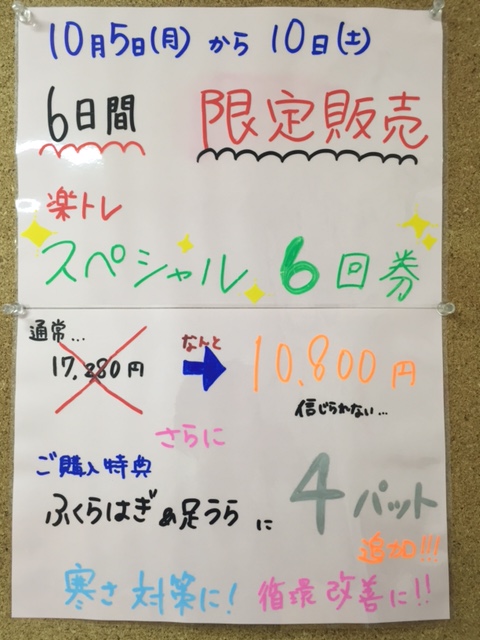 10月5日(月) から 10日(土)
6日間 限定販売
楽トレ
スペシャル 6回券
通常...
17,280円 なんと 10,800円
信じられない...
さらに
ご購入特典
ふくらはぎ&足うら に 4パット
追加!!!
寒さ対策に! 循環改善に!!